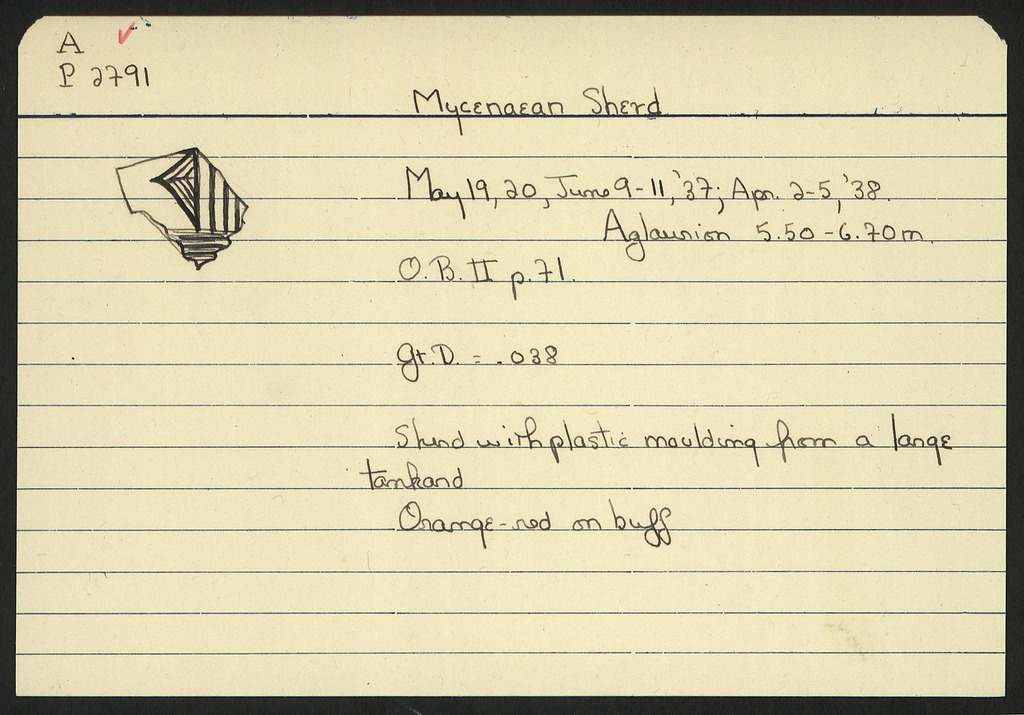 A
P 2791
Mycenaean Sherd
May 19, 20, June 9-11, '37; Apr. 2-5, '38.
Aglaurion 5.50-6.70m.
O.B. II p.71.
Gr.D. = .038
Sherd with plastic moulding from a large
tankard
Orange-red on buff